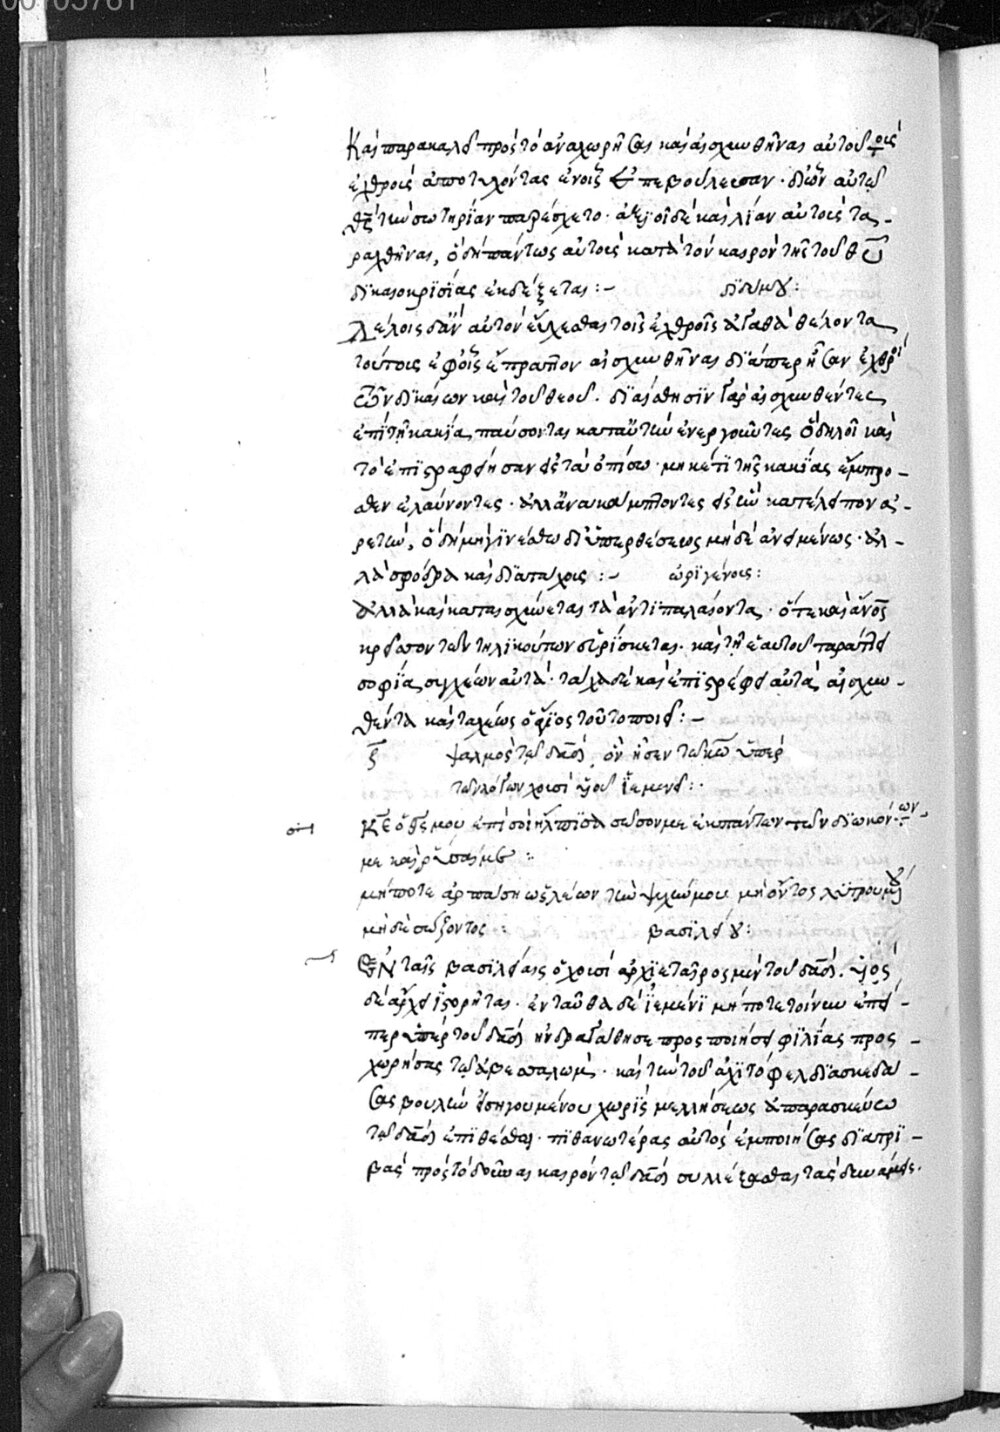 00103761
Καὶ παρακαλεῖ πρὸς τὸ ἀναχωρῆσαι καὶ αἰσχυνθῆναι αὐτοῦ τοὺς
ἐχθροὺς ἀποτυχόντας ἐν οἷς ἐπεβούλευσαν· δι' ὧν αὐτῷ
τὴν σωτηρίαν παρέσχετο· δὲ καὶ λίαν αὐτοὺς τα-
ραχθῆναι, ὃ δὴ πάντως αὐτοὺς κατὰ τὸν καιρὸν τῆς τοῦ θυ
δικαιοκρισίας ἐκδέξεται:- διδύμου:
λέγοις δ' ἂν αὐτὸν εὔχεσθαι τοῖς ἐχθροῖς ἀγαθὰ θέλοντα
τούτους ἐφ' οἷς ἔπραττον αἰσχυνθῆναι δι' ἅπερ ἦσαν ἐχθροὶ
τῶν δικαίων καὶ τοῦ θεοῦ. γὰρ αἰσχυνθέντες
ἐπὶ τῇ κακίᾳ παύσονται κατ' αὐτὴν ἐνεργοῦντες ὃ δηλοῖ καὶ
τὸ ἐπιστραφήσαν εἰς τὰ ὀπίσω· μηκέτι τῆς κακίας ἔμπρο-
σθεν ἐλαύνοντες· ἀλλ' ἀνακάμπτοντες εἰς ἣν κατέλειπον ἀ-
ρετήν, ὃ δὴ μὴ γινέσθω δι' ὑπερθέσεως μηδὲ ἀνειμένως· ἀλ-
λὰ σφόδρα καὶ διὰ τάχους:- ὠριγένους:
ἀλλὰ καὶ καταισχύνεται τὰ ἀντιπαλαίοντα· ὅτε καὶ ἄνος
κρείττων τῶν τηλικούτων εὑρίσκεται· καὶ τῇ ἑαυτοῦ παρα
σοφίᾳ συγχέων αὐτὰ· τάχα δὲ καὶ ἐπιστρέφει αὐτὰ αἰσχυν-
θέντα καὶ ταχέως ὁ τοῦτο ποιεῖ:-
ζ ψαλμὸς τῷ δαδ, ὃν ᾖσεν τῷ κω ὑπὲρ
τῶν λόγων χουσὶ υἱοῦ ἰεμενεί:
κε ὁ θς μου ἐπὶ σοὶ ἤλπισα σῶσον με ἐκ πάντων τῶν διωκόντων
με καὶ ῥῦσαί με:
μήποτε ἁρπάσῃ ὡς λέων τὴν ψυχήν μου μὴ ὄντος λυτρουμένου
μηδὲ σώζοντος: βασιλείου:
ἐν ταῖς βασιλείαις ὁ χουσὶ ἀρχιεταῖρος μὲν τοῦ δαδ. υἱὸς
δὲ ἀραχεὶ ἱστορῆται· ἐνταῦθα δὲ ἰεμενὶ μήποτε τοίνυν ἐπεί-
περ ὑπὲρ τοῦ δαδ ἠνδραγάθησε προσποιήσει φιλίας προσ-
χωρήσας τῷ ἀβεσαλώμ· καὶ τὴν τοῦ ἀχιτόφελ διασκεδά-
σας βουλὴν εἰσηγουμένου χωρὶς μελλήσεως ἀπαρασκεύω
τῷ δαδ ἐπιθέσθαι· πιθανωτέρας αὐτὸς ἐμποιήσας διατρι-
βὰς πρὸς τὸ δοῦναι καιρὸν τῷ δαδ συλλέξασθαι τὰς δυνάμεις.